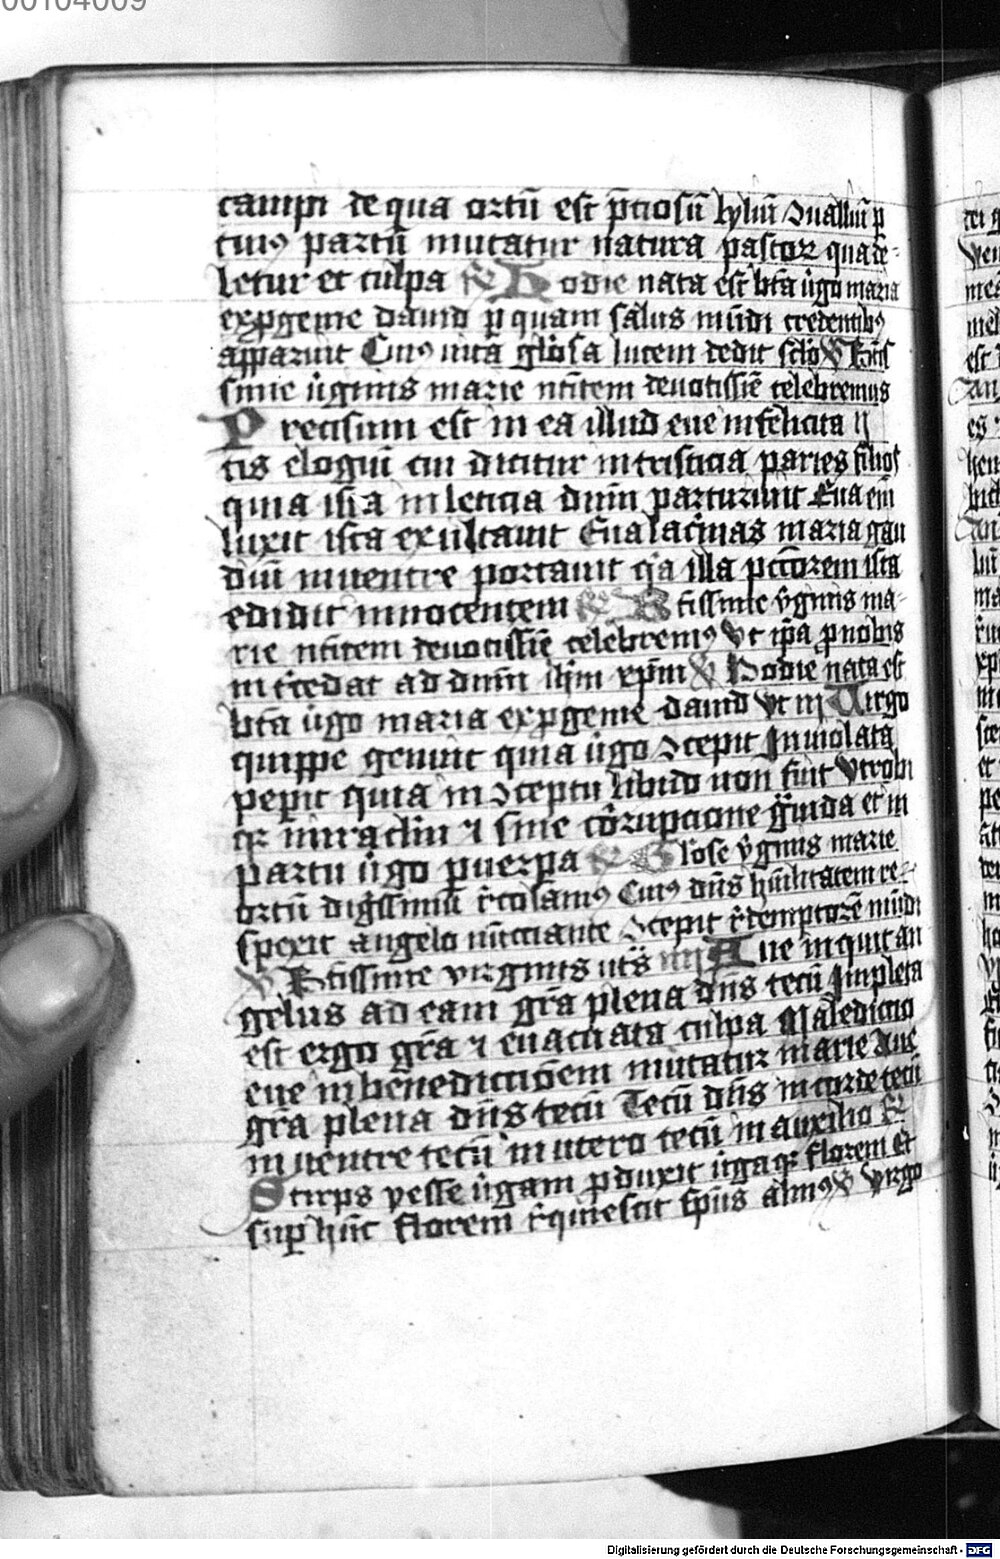 00104009
campi de qua ortū est p̄ciosū lyliū ꝯualliū ꝑ
cuiꝰ partū mutatur natura pastor qua de-
letur et culpa ℟ Hodie nata est bt̄a ůgo maria
exꝓgenie dauid ꝑ quam salus mūdi credentibꝰ
apparuit Cuiꝰ uita glōsa lucem dedit sclo ℣ Btīs
sime ůginis marie ntītem deuotissīe celebremus
Precisum est in ea illud eue infelicita ij
tis elogiū cui dicitur in tristicia paries filios
quia ista in leticia dnm̄ parturiuit Eua eni
luxit ista exultauit Eua lac̓mas maria gau
diū in uentre portauit qͥa illa pctōrem ista
edidit innocentem ℟ Btīssime ůginis ma-
rie ntītem deuotissīe celebremꝰ Vt ip̄a ꝓ nobis
int̓cedat ad dnm̄ ihm̄ xpm̄ ℣ Hodie nata est
bt̄a ůgo maria exꝓgenie dauid Vt iij Uirgo
quippe genuit quia ůgo ꝯcepit Inuiolata
peꝑit quia in ꝯceptu libido non fuit Vtrobi
qꝫ miraclm̄ ⁊ sine cōrupcione gͣuida et in
partu ůgo puerpa ℟ Glōse ůginis marie
ortū digissimū r̓colamꝰ Cuiꝰ dn̄s hūilitatem re-
spexit angelo nūcciante ꝯcepit r̓demptorē mūdi
℣ Btīssime virginis uts̄ iiij Aue inquit an
gelus ad eam grā plena dn̄s tecū Impleta
est ergo grā ⁊ euacuata culpa Maledictio
eue in benedictiōem mutatur marie Aue
grā plena dn̄s tecū Tecū dn̄s in corde tecū
in uentre tecū in utero tecū in auxilio ℟
Stirps yesse ůgam ꝓduxit ůgaqꝫ florem Et
suꝑ hūc florem r̓quiescit sp̄us almꝰ ℣ Virgo
Digitalisierung gefördert durch die Deutsche Forschungsgemeinschaft - DFG